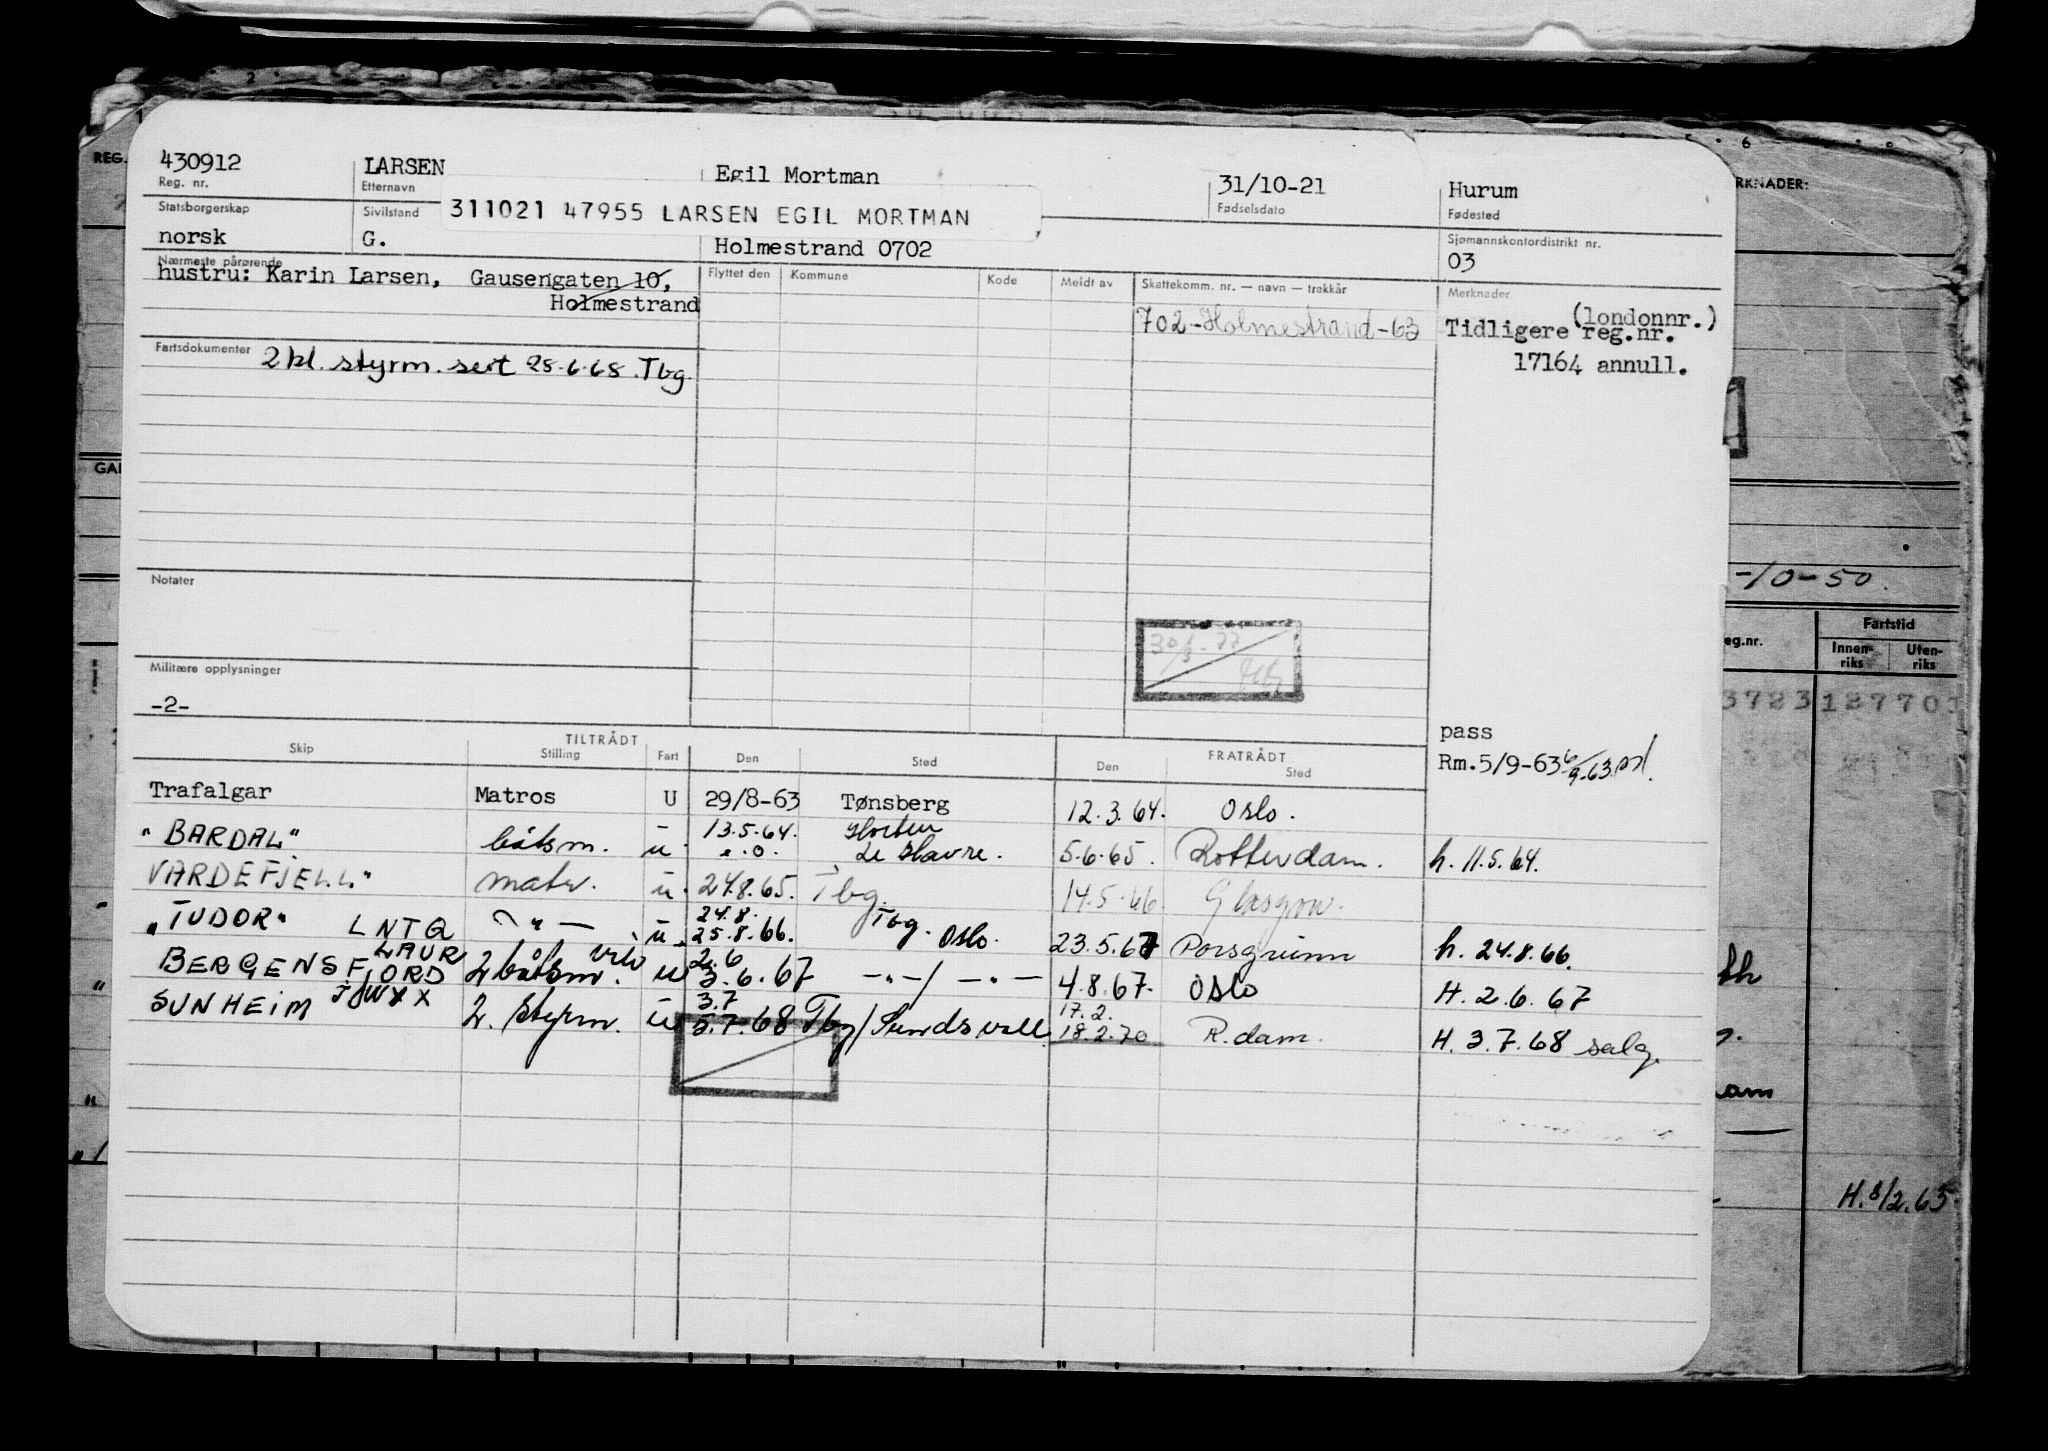 430912 LARSEN Egil Mortman 31/10-21 Hurum
Reg. nr. Etternavn Fødselsdato Fødested
Statsborgerskap Sivilstand 311021 47955 LARSEN EGIL MORTMAN Sjømannskontordistrikt nr.
norsk G. Holmestrand 0702 03
Nærmeste pårørende Flyttet den Kommune Kode Meldt av Skattekomm. nr. — navn — trekkår Merknader
hustru: Karin Larsen, Gausengaten 10,
Holmestrand
702-Holmestrand-63
(londonnr.)
Tidligere reg.nr.
17164 annull.
Fartsdokumenter 2 kl. styrm. sert 28.6.68. Tbg.
Notater
30/3-77
Militære opplysninger
-2-
pass
Rm.5/9-63 6/9-63
TILTRÅDT FRATRÅDT
Skip Stilling Fart Den Sted Den Sted
Trafalgar Matros U 29/8-63 Tønsberg 12.3.64. Oslo.
"BARDAL" båtsm. u 13.5.64. Horten Le Havre. 5.6.65. Rotterdam. h. 11.5.64.
VARDEFJELL" matr. u. 24.8.65. Tbg. 14.5.66 Glasgow.
"TUDOR" LNTQ — " — u. 24.8. 25.8.66. Tbg. Oslo. 23.5.67 Porsgrunn h. 24.8.66.
BERGENSFJORD LAUR 2 båtsm. u 2.6 3.6.67 —"—/—"— 4.8.67. OSLO H. 2.6.67
SUNHEIM JWXX 2. styrm. u 3.7 5.7.68 Tbg/Sundsvall 17.2. 18.2.70 R.dam. H. 3.7.68 salg.
REG.
RKNADER:
GA
-10-50.
eg.nr. Fartstid
Innen-riks Uten-riks
3723 12770
th
am
H. 8/2.65